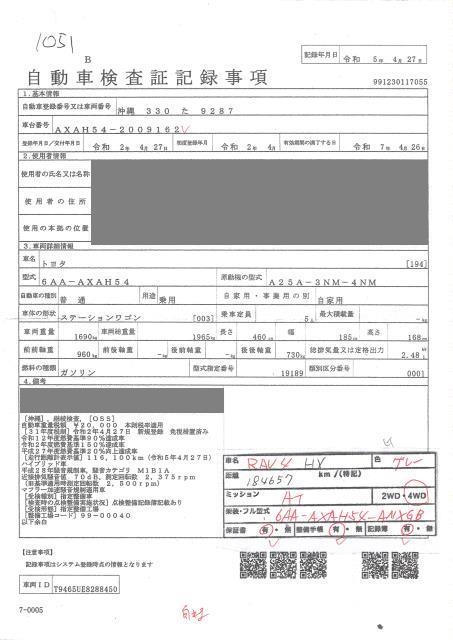 1051
B
記録年月日 令和 5年 4月 27日
自動車検査証記録事項
991230117055
1.基本情報
自動車登録番号又は車両番号 沖縄 330 た 9287
車台番号 AXAH54-2009162
登録年月日/交付年月日 令和 2年 4月 27日 初度登録年月 令和 2年 4月 有効期間の満了する日 令和 7年 4月 26日
2.使用者情報
使用者の氏名又は名称
使用者の住所
使用の本拠の位置
3.車両詳細情報
車名 トヨタ [194]
型式 6AA-AXAH54 原動機の型式 A25A-3NM-4NM
自動車の種別 普通 用途 乗用 自家用・事業用の別 自家用
車体の形状 ステーションワゴン [003] 乗車定員 5人 最大積載量 -kg
車両重量 1690kg 車両総重量 1965kg 長さ 460cm 幅 185cm 高さ 168cm
前前軸重 960kg 前後軸重 -kg 後前軸重 -kg 後後軸重 730kg 総排気量又は定格出力 2.48L
燃料の種類 ガソリン 型式指定番号 19189 類別区分番号 0001
4.備考
[沖縄],継続検査,[OSS]
自動車重量税額 ¥20,000 本則税率適用
令和12年度燃費基準90%達成車
令和2年度燃費基準150%達成車
[走行距離計表示値]116,100km(令和5年4月27日)
ハイブリッド車
平成28年騒音規制車,騒音カテゴリ M1B1A
近接排気騒音値 70dB,測定回転数 2,375rpm
マフラー加速騒音規制適用車
[受検種別]指定整備車
[検査時の点検整備実施状況]点検整備記録簿記載あり
[受検形態]指定整備工場
[整備工場コード]99-00040
以下余白
車名 RAV4 HV 色 グレー
距離 184657 km/(特記)
ミッション AT 2WD・4WD
架装・フル型式 6AA-AXAH54-ANXGB
保証書 有・無 整備手帳 有・無 記録簿 有・無
【注意事項】
記録事項はシステム登録時点の情報となります
車両ID T9465UE8288450
7-0005